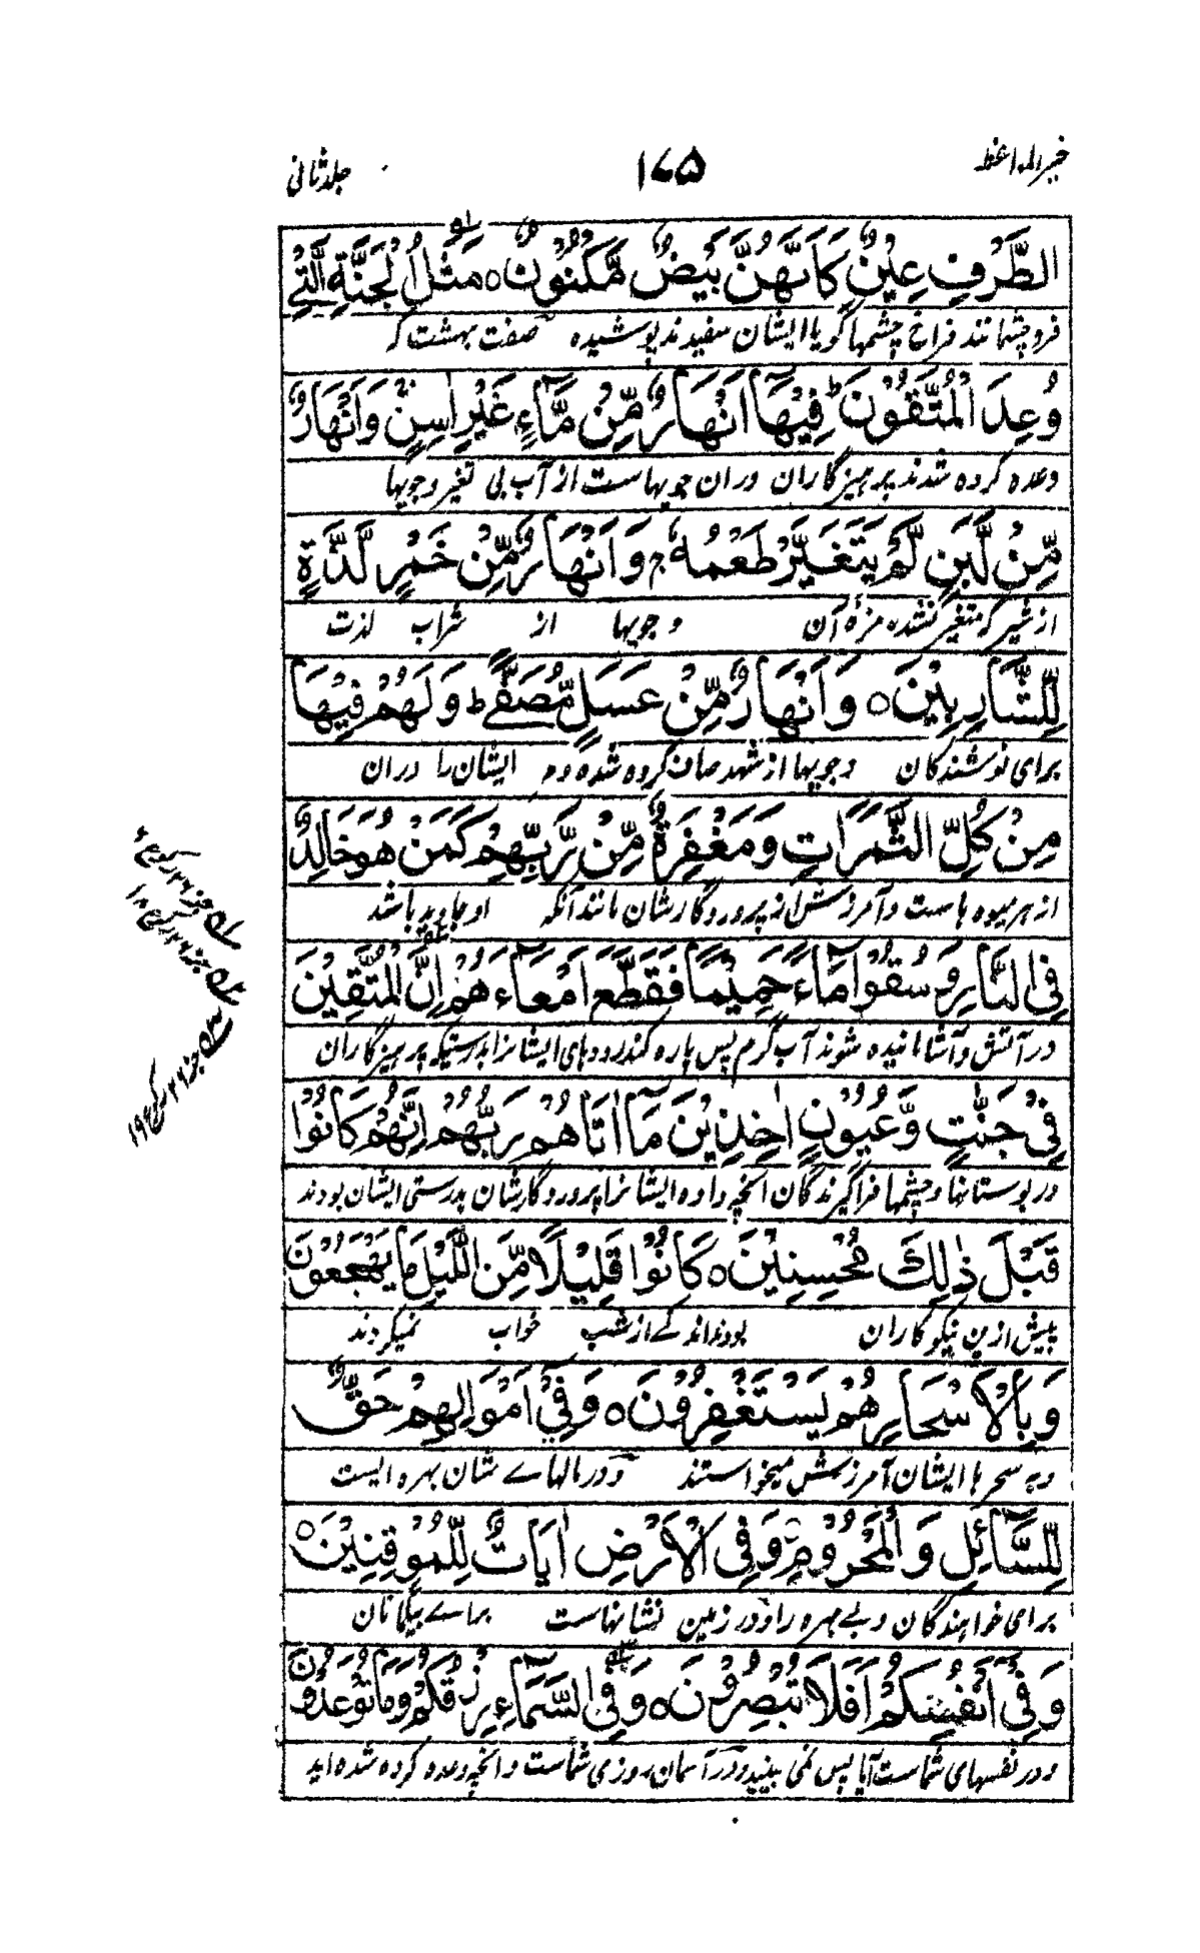 خیر المواعظ
۱۷۵
جلد ثانی
الطَّرْفِ عِيْنٌ كَاَنَّهُنَّ بَيْضٌ مَّكْنُوْنٌ ○ مَثَلُ الْجَنَّةِ الَّتِيْ
فروچشمانند فراخ چشمها گویا ایشان سفیدند پوشیده صفت بهشت که
وُعِدَ الْمُتَّقُوْنَ ط فِيْهَآ اَنْهَارٌ مِّنْ مَّآءٍ غَيْرِ اٰسِنٍ وَاَنْهَارٌ
وعده کرده شدند پرهیزگاران دران جویهاست از آب بی تغیر و جویها
مِّنْ لَّبَنٍ لَّمْ يَتَغَيَّرْ طَعْمُهٗ ج وَاَنْهَارٌ مِّنْ خَمْرٍ لَّذَّةٍ
از شیر که متغیر نشده مزه آن و جویها از شراب لذت
لِّلشَّارِبِيْنَ ○ وَاَنْهَارٌ مِّنْ عَسَلٍ مُّصَفًّى ط وَلَهُمْ فِيْهَا
برای نوشندگان و جویها از شهد صاف کرده شده و مر ایشان را دران
مِنْ كُلِّ الثَّمَرَاتِ وَمَغْفِرَةٌ مِّنْ رَّبِّهِمْ كَمَنْ هُوَ خَالِدٌ
از هر میوه ها ست و آمرزش از پروردگار شان مانند آنکه او جاوید باشد
فِي النَّارِ وَسُقُوْا مَآءً حَمِيْمًا فَقَطَّعَ اَمْعَآءَهُمْ اِنَّ الْمُتَّقِيْنَ
در آتش و آشامانیده شوند آب گرم پس پاره کند روده های ایشانرا بدرستیکه پرهیزگاران
فِيْ جَنّٰتٍ وَّعُيُوْنٍ اٰخِذِيْنَ مَآ اٰتَاهُمْ رَبُّهُمْ اِنَّهُمْ كَانُوْا
در بوستانها و چشمها فراگیرندگان آنچه داده ایشانرا پروردگار شان بدرستی ایشان بودند
قَبْلَ ذٰلِكَ مُحْسِنِيْنَ ○ كَانُوْا قَلِيْلًا مِّنَ اللَّيْلِ مَا يَهْجَعُوْنَ
پیش ازین نیکوکاران بودند اندکے از شب خواب نمیکردند
وَبِالْاَسْحَارِ هُمْ يَسْتَغْفِرُوْنَ ○ وَفِيْ اَمْوَالِهِمْ حَقٌّ
و به سحر ها ایشان آمرزش میخواستند و در مالهاے شان بهره ایست
لِّلسَّآئِلِ وَالْمَحْرُوْمِ وَفِي الْاَرْضِ اٰيَاتٌ لِّلْمُوْقِنِيْنَ ○
برای خواهندگان و بے بهره را و در زمین نشانهاست براے
وَفِيْ اَنْفُسِكُمْ اَفَلَا تُبْصِرُوْنَ ○ وَفِي السَّمَآءِ رِزْقُكُمْ وَمَا تُوْعَدُوْنَ
و در نفسهای شماست آیا پس نمی بینید و در آسمان روزی شماست و آنچه وعده کرده شده اید